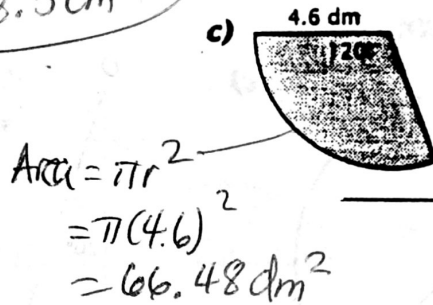 4.6 dm
c)
120°
Area = πr²
= π(4.6)²
= 66.48 dm²